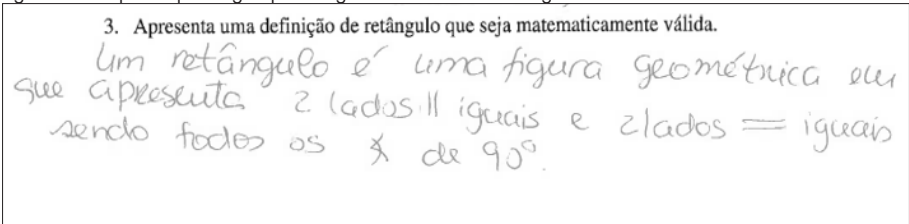 3. Apresenta uma definição de retângulo que seja matematicamente válida.
Um retângulo é uma figura geométrica em
que apresenta 2 lados || iguais e 2 lados = iguais
sendo todos os ∡ de 90°.